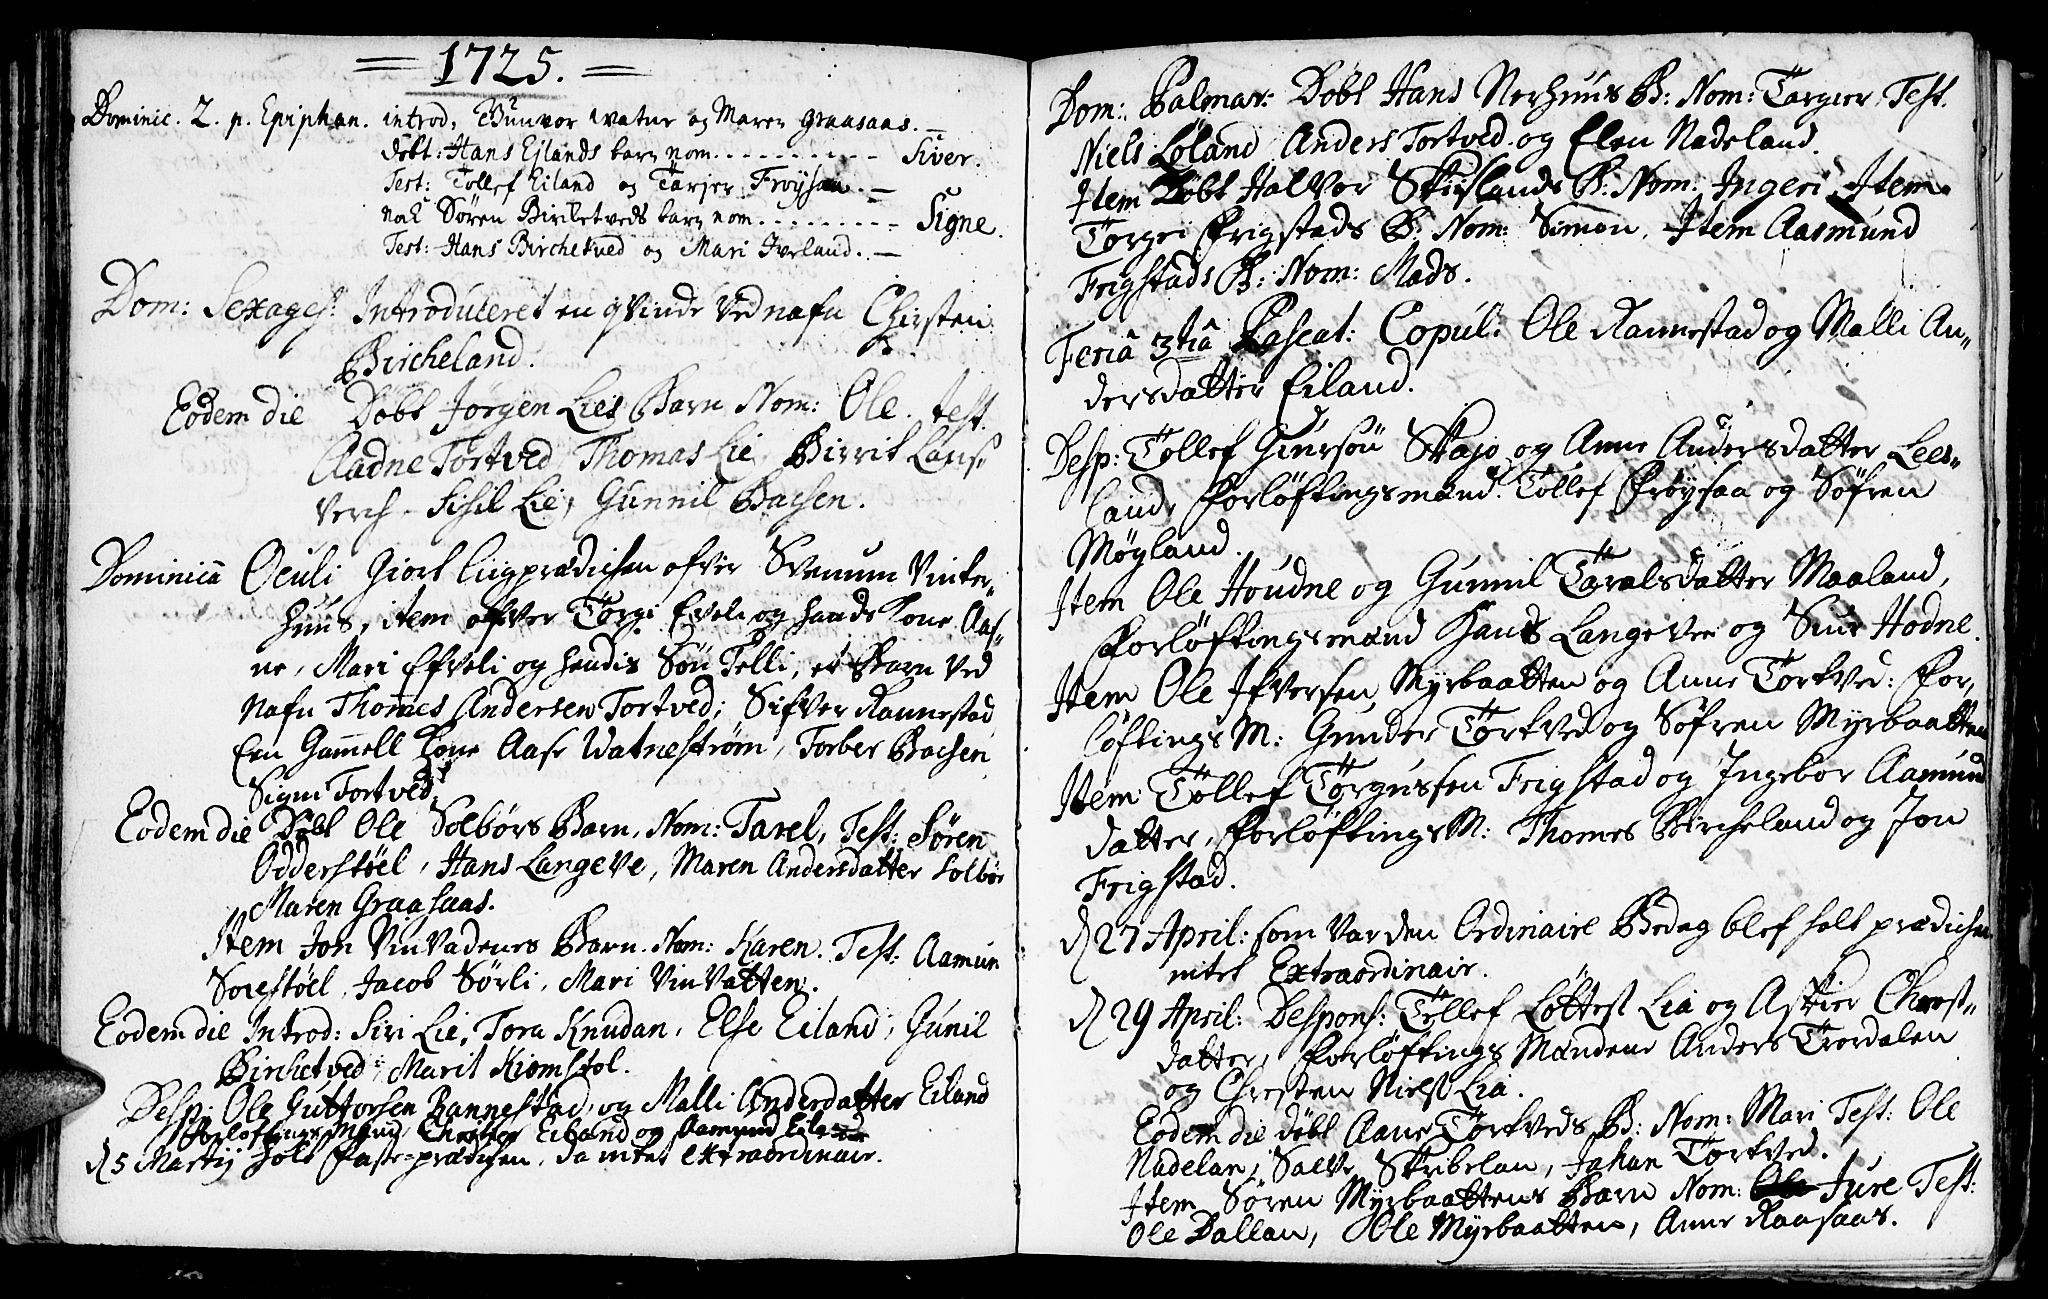 1725.
Dominic. 2. p. Epiphan. introd. Gunvor Watne og Maren Graasaas.
døbt: Hans Eilands barn nom. Siver.
Test: Tollef Eiland og Tarjer Frøysaa.
nok Søren Birketveds barn nom. Signe.
Test: Hans Birchetved og Mari Iverland.
Dom: Sexages: Introduceret en qvinde ved nafn Chirsten
Bircheland.
Eodem die Døbt Jørgen Lies Barn Nom: Ole. test.
Aadne Tortved, Thomas Lie, Birrit
Sisil Lie, Gunnil Bachen.
Dominica Oculi Giort liigprædichen ofver Svenum Vinter-
huus, item ofver Tørgi Eveli og hands Kone Aas-
ne, Mari Efveli og hendis Søn Telli, et Barn ved
Nafn Thomes Andersen Tortved, Sifver Rannestad
Een Gamell Kone Aase Watnestrøm, Torber Bachen
Signe Tortved.
Eodem die Døbt Ole Solbørs Barn, Nom: Tarel, Test: Søren
Odderstøel, Hans Langeve, Maren Andersdatter Solbør
Maren Graasaas.
Item Jon VinVadnes Barn. Nom: Karen. Test: Aamun
Sorestøel, Jacob Sørli, Mari VinVatten.
Eodem die Introd: Siri Lie, Tora Knudan, Else Eiland, Gunil
Birchetved, Marit Kiomstol.
Desp: Ole Guttorsen Rannestad, og Malli Andersdatter Eiland
Forløftnings Mænd, Christen Eiland og Aamund Eiland
d 5 Martij holt Faste-prædichen, da intet extraordinair.
Dom: Palmar: Døbt Hans Nerhuus B: Nom: Targier, Test.
Niels Løland, Anders Tortved og Elen Nadeland.
Item Døbt Halvor Skieslands B: Nom: Ingeri, Item
Tørgei Frigstads B: Nom: Simon, Item Aasmund
Frigstads B: Nom: Mads.
Feria 3tia Pascat: Copul: Ole Rannestad og Malli An-
dersdatter Eiland.
Desp: Tollef Giursøn Skajo og Anne Andersdatter Lees-
land, Forløftingsmænd. Tollef Frøysaa og Søfren
Møyland.
Item Ole Houdne og Gunnil Taralsdatter Maaland,
Forløftingsmænd Hans Langevee og Siur Hodne.
Item Ole Ifversen Myrbaatten og Anne Tørkved: For-
løftings M: Gunder Tørkved og Søfren Myrbaatten
Item Tøllef Tørgusfen Frigstad og Ingebor Aamund
datter, Forløftings M: Thomes Bircheland og Jon
Frigstad.
d 27 April: som var den Ordinaire Bedag blef holt prædichen
intet Extraordinair.
d 29 April: Despons: Tøllef Løttest Lia og Askier Chrest-
datter, Forløftings Mændene Anders Trerdalen
og Chresten Nielst Lia.
Eodem die døbt Aane Tørkveds B: Nom: Mari Test: Ole
Nadelan, Salve Skribelan, Johan Tørkved.
Item Søren Myrbaattens Barn Nom: Jure Test:
Ole Dallan, Ole Myrbaatten, Anne Raasaas.